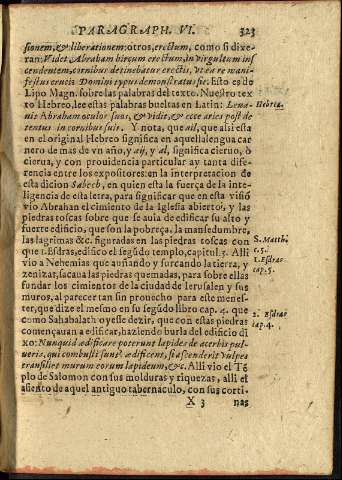 PARAGRAPH. VI. 323
sionem, & liberationem: otros, erectum, como si dixe-
ran: Videt Abraham hircum erectum, in virgultum ins
cendentem, cornibus detinebatur erectis, ut ea re mani-
festus crucis Domini typus demonstratus sit. Esto es de
Lipo Magn. sobre las palabras del texto. Nuestro tex
to Hebreo, lee estas palabras bueltas en Latin: Leua- Hebrea.
uit Abraham oculos suos, & vidit, & ecce aries post de
tentus in cornibus suis. Y nota, que ail, que assi esta
en el original Hebreo significa en aquella lengua car
nero de mas de vn año, y aij, y al, significa cieruo, ò
cierua, y con prouidencia particular ay tanta dife-
rencia entre los expositores en la interpretacion de
esta dicion Sabech, en quien esta la fuerça de la inte-
ligencia de esta letra, para significar que en esta visiõ
vio Abrahan el cimiento de la Iglesia abierto, y las
piedras toscas sobre que se auia de edificar su alto y
fuerte edificio, que son la pobreça, la mansedumbre,
las lagrimas &c. figuradas en las piedras toscas con S. Matth.
que 1. Esdras, edificò el segũdo templo, capit. 5. Alli c. 5.
vio a Nehemias que ahondo y surcando la tierra, y 1. Esdras
zenizar, sacaua las piedras quemadas, para sobre ellas cap. 5.
fundar los cimientos de la ciudad de Ierusalen y sus
muros, al parecer tan sin prouecho para este menes-
ter, que dize el mesmo en su segũdo libro cap. 4. que 2. Esdras
como Sahabalath oyesse dezir, que con estas piedras cap. 4.
començauan a edificar, haziendo burla del edificio di
xo: Nunquid ædificare poterunt lapides de aceruis pul-
ueris, qui combusti sunt? ædificent, si ascenderit vulpes
transiliet murum eorum lapideum, &c. Alli vio el Tẽ
plo de Salomon con sus molduras y riquezas, alli el
assiento de aquel antiguo tabernaculo, con sus corti-
X 3 nas